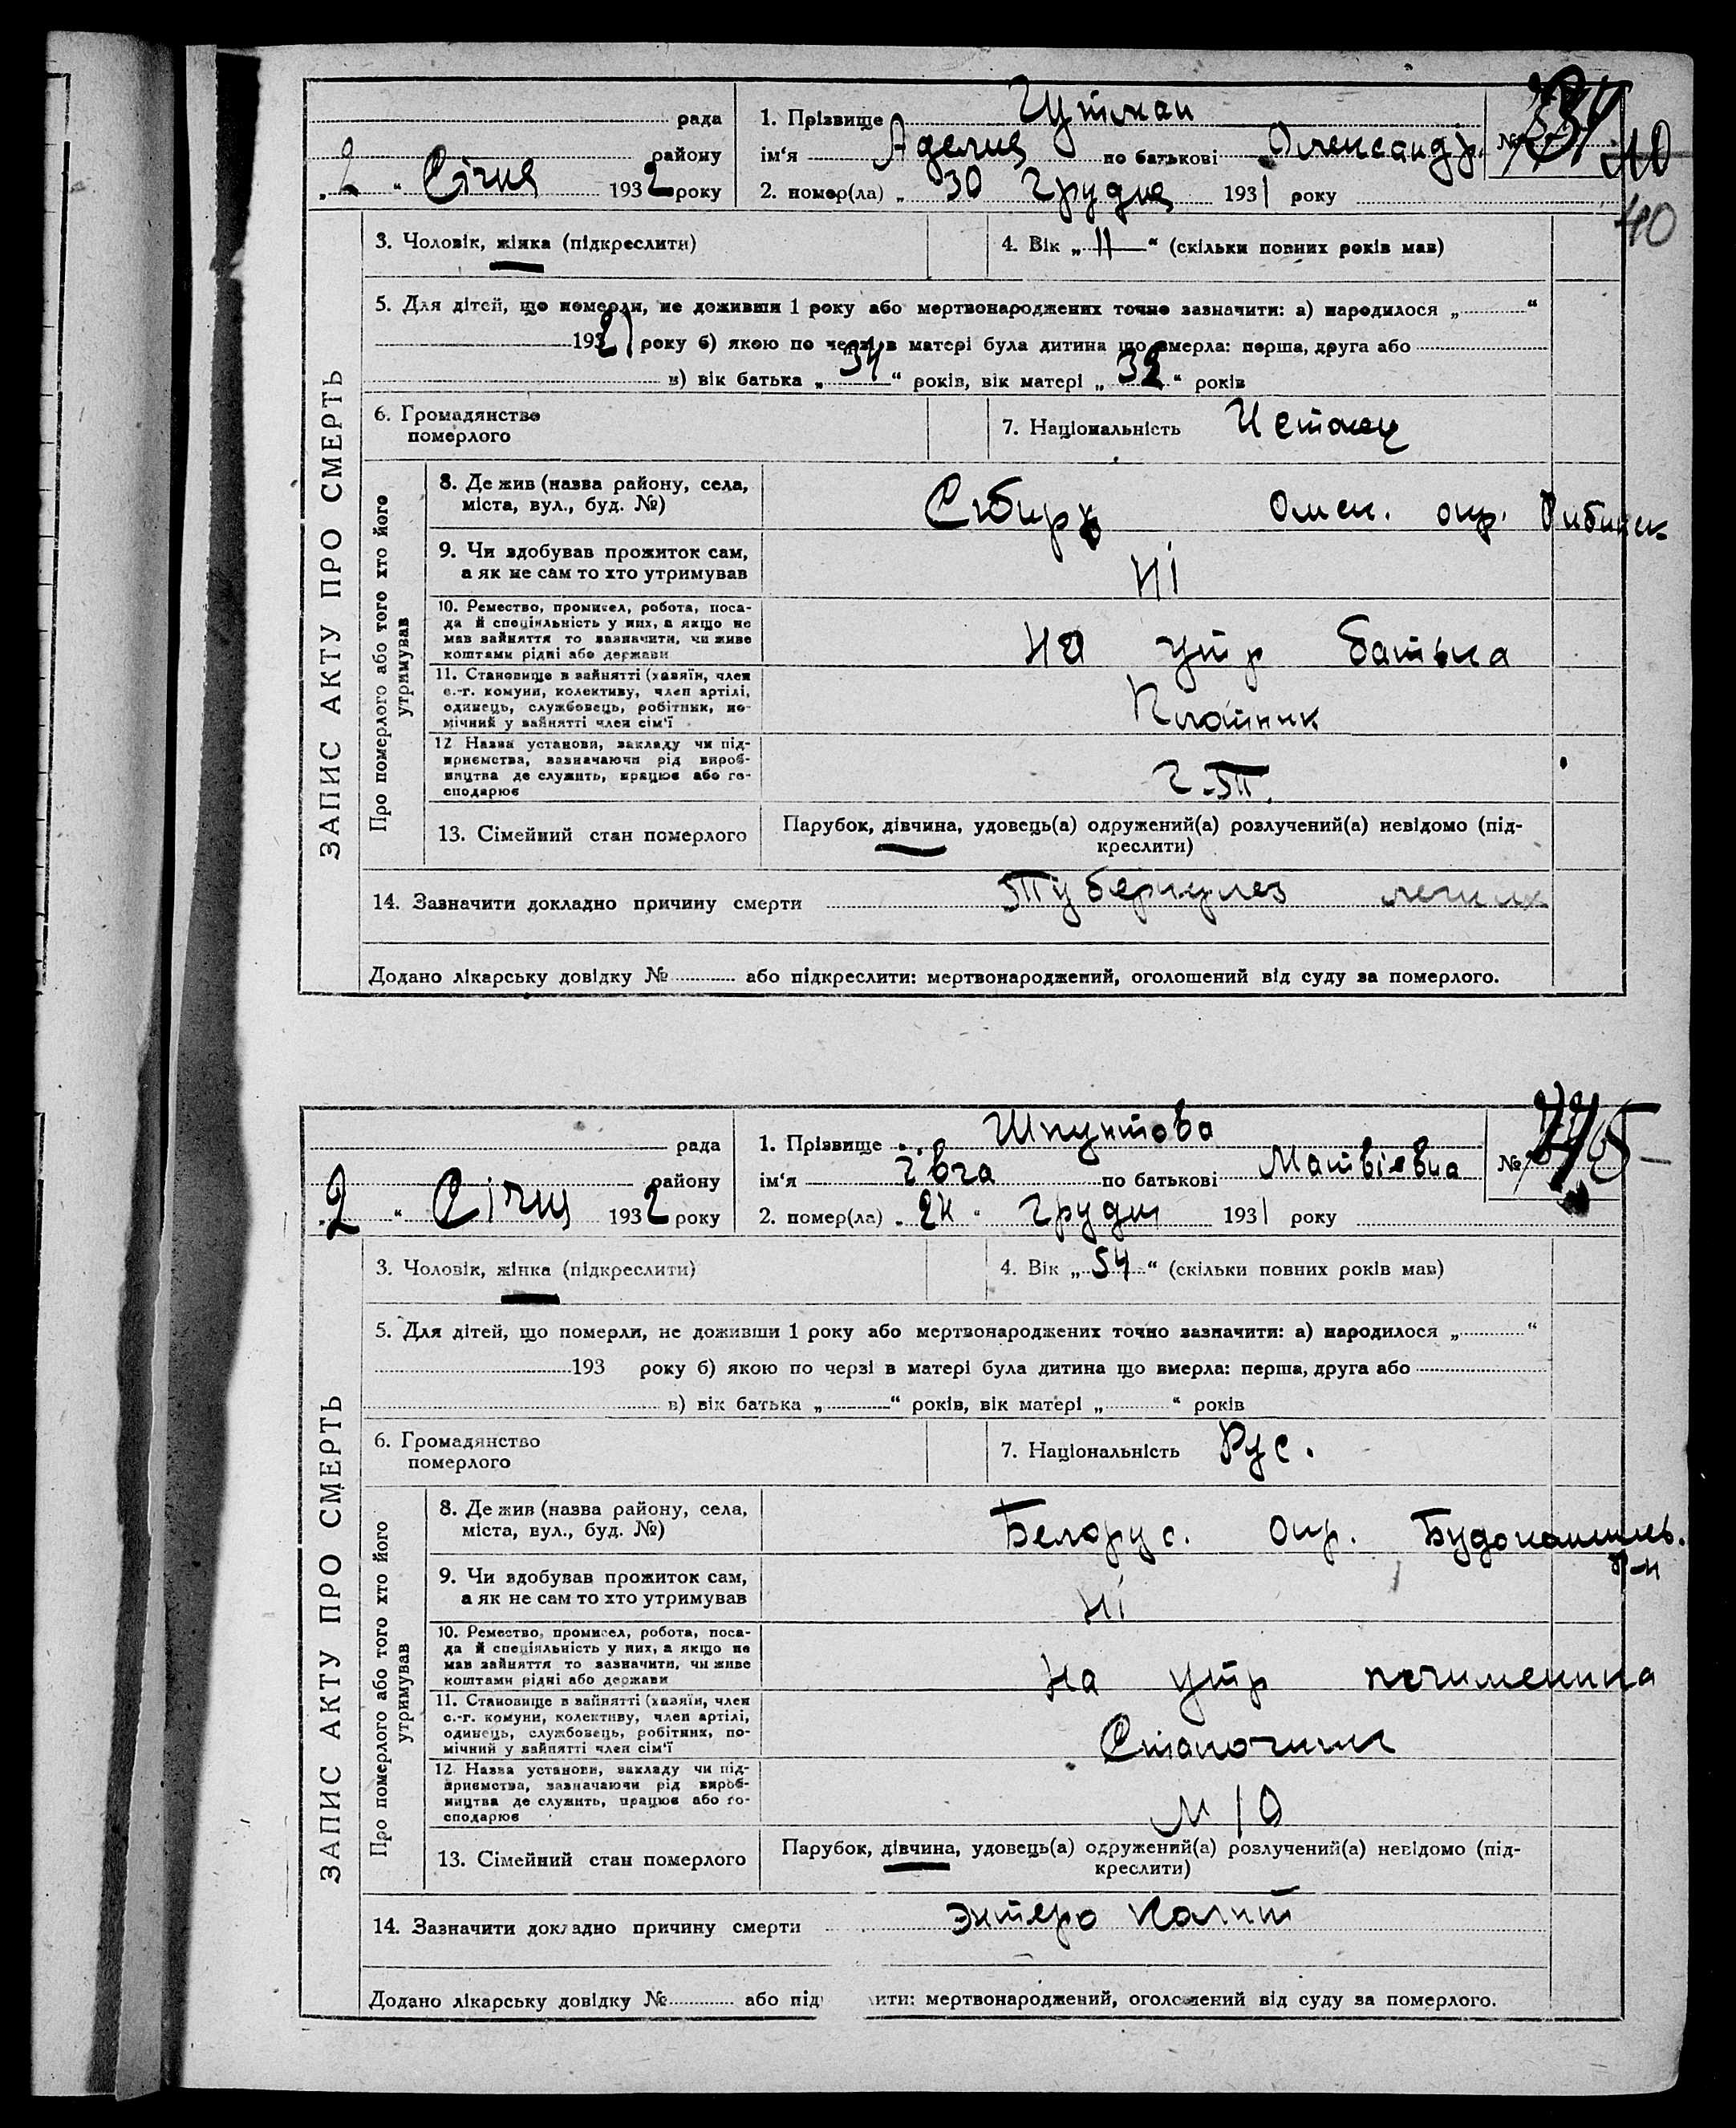 рада
1. Прізвище Гутман
району
ім‘я Аделия по батькові Олександр.
№
40
„2“ Січня 1932 року
2. номер(ла) „30 Грудня 1931 року
40
3. Чоловік, жінка (підкреслити)
4. Вік „11“ (скільки повних років мав)
5. Для дітей, що померли, не доживши 1 року або мертвонароджених точно зазначити: а) народилося „ “
193 року б) якою по черзі в матері була дитина що вмерла: перша, друга або
в) вік батька „34“ років, вік матері „32“ років
6. Громадянство
померлого
7. Національність
ЗАПИС АКТУ ПРО СМЕРТЬ
Про померлого або того хто його
утримував
8. Де жив (назва району, села,
міста, вул., буд. №)
Сибирь Омск. окр. Рибинск
9. Чи здобував прожиток сам,
а як не сам то хто утримував
Ні
10. Ремество, промисел, робота, поса-
да й спеціяльність у них, а якщо не
мав зайняття то зазначити, чи живе
коштами рідні або держави
на утр батька
11. Становище в зайнятті (хазяїн, член
с.-г. комуни, колективу, член артілі,
одинець, службовець, робітник, по-
мічний у зайнятті член сім‘ї
Плотник
12 Назва установи, закладу чи під-
приємства, зазначаючи рід вироб-
ництва де служить, працює або го-
сподарює
13. Сімейний стан померлого
Парубок, дівчина, удовець(а) одружений(а) розлучений(а) невідомо (під-
креслити)
14. Зазначити докладно причину смерти Туберкулез легких
Додано лікарську довідку № або підкреслити: мертвонароджений, оголошений від суду за померлого.
рада
1. Прізвище Шпунтова
району
ім‘я Гівга по батькові Матвіевна
№
„2“ Січня 1932 року
2. помер(ла) „24“ Грудн 1931 року
3. Чоловік, жінка (підкреслити)
4. Вік „54“ (скільки повних років мав)
5. Для дітей, що померли, не доживши 1 року або мертвонароджених точно зазначити: а) народилося „ “
193 року б) якою по черзі в матері була дитина що вмерла: перша, друга або
в) вік батька „ “ років, вік матері „ “ років
6. Громадянство
померлого
7. Національність Рус.
ЗАПИС АКТУ ПРО СМЕРТЬ
Про померлого або того хто його
утримував
8. Де жив (назва району, села,
міста, вул., буд. №)
Белорус. окр. Будокашилев.
р-н
9. Чи здобував прожиток сам,
а як не сам то хто утримував
Ні
10. Ремество, промисел, робота, поса-
да й спеціяльність у них, а якщо не
мав зайняття то зазначити, чи живе
коштами рідні або держави
на утр
11. Становище в зайнятті (хазяїн, член
с.-г. комуни, колективу, член артілі,
одинець, службовець, робітник, по-
мічний у зайнятті член сім‘ї
12 Назва установи, закладу чи під-
приємства, зазначаючи рід вироб-
ництва де служить, працює або го-
сподарює
13. Сімейний стан померлого
Парубок, дівчина, удовець(а) одружений(а) розлучений(а) невідомо (під-
креслити)
14. Зазначити докладно причину смерти Энтеро Колит
Додано лікарську довідку № або під ити: мертвонароджений, оголошений від суду за померлого.